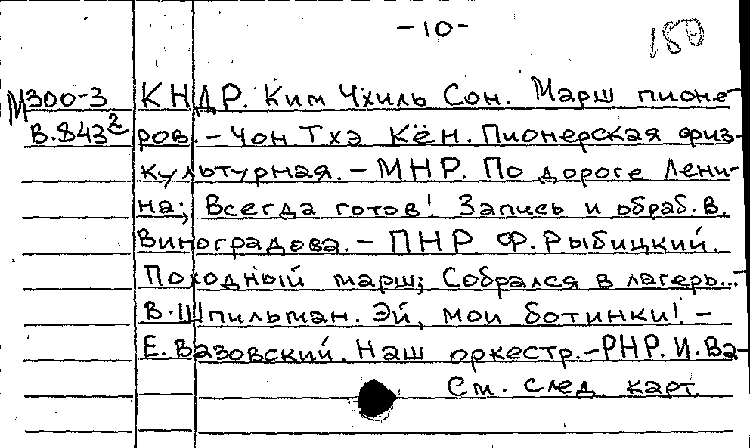 -10-
150
М300-3 КНДР. Ким Чхиль Сон. Марш пионе-
В.843² ров. - Чон Тхэ Кён. Пионерская физ-
культурная. - МНР. По дороге Лени-
на; Всегда готов! Запись и обраб. В.
Виноградова. - ПНР Ф. Рыбицкий.
Походный марш; Собрался в лагерь... -
В. Шпильман. Эй, мои ботинки! -
Е. Вазовский. Наш оркестр. - РНР. И. Ва-
См. след карт